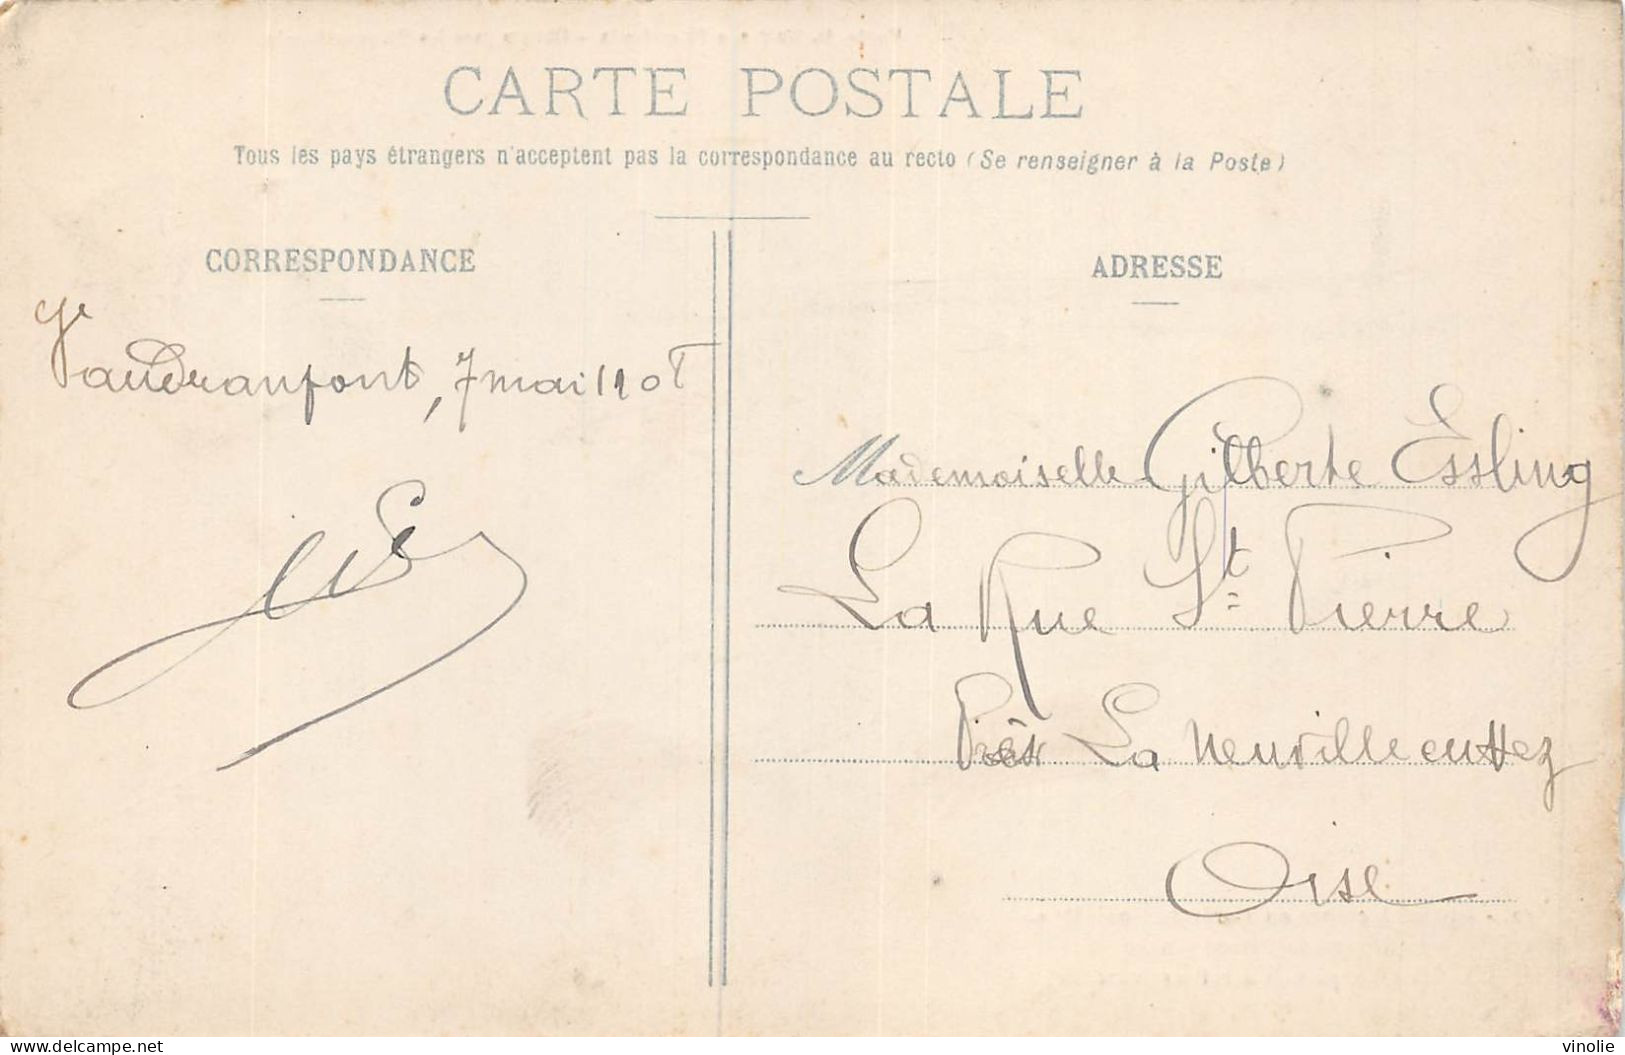 CARTE POSTALE
Tous les pays étrangers n'acceptent pas la correspondance au recto (Se renseigner à la Poste)
CORRESPONDANCE
7 mai 190
ADRESSE
Mademoiselle Gilberte Essling
La Rue St Pierre
Près La Neuville en Hez
Oise
delcampe.net
vinolie